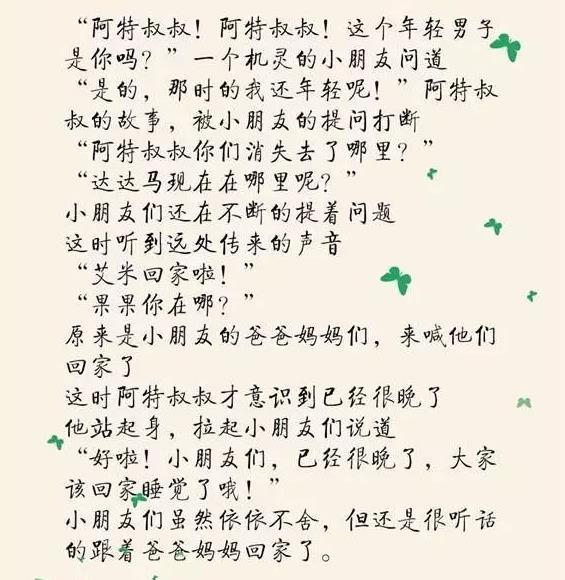 “阿特叔叔！阿特叔叔！这个年轻男子
是你吗？”一个机灵的小朋友问道
“是的，那时的我还年轻呢！”阿特叔
叔的故事，被小朋友的提问打断
“阿特叔叔你们消失去了哪里？”
“达达马现在在哪里呢？”
小朋友们还在不断的提着问题
这时听到远处传来的声音
“艾米回家啦！”
“果果你在哪？”
原来是小朋友的爸爸妈妈们，来喊他们
回家了
这时阿特叔叔才意识到已经很晚了
他站起身，拉起小朋友们说道
“好啦！小朋友们，已经很晚了，大家
该回家睡觉了哦！”
小朋友们虽然依依不舍，但还是很听话
的跟着爸爸妈妈回家了。